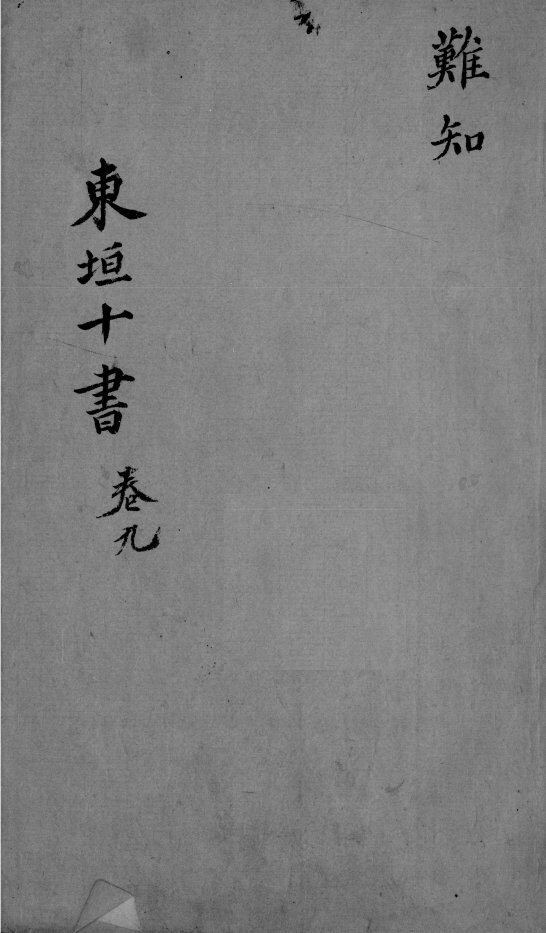 難知
東垣十書
卷九